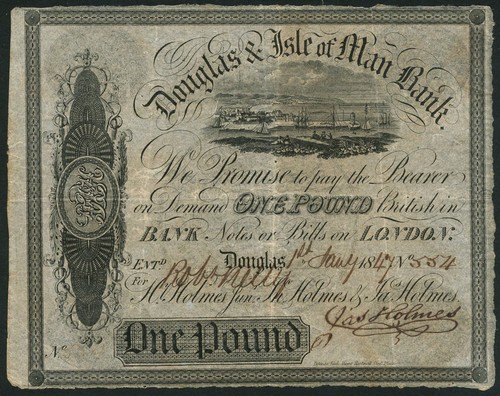 Douglas & Isle of Man Bank.
We Promise to pay the Bearer
on Demand ONE POUND British in
BANK Notes or Bills on LONDON.
Douglas 1st Jany 184 No 554
ENTD
For H. Holmes Junr. Jh. Holmes & Jas. Holmes.
Jas Holmes
One Pound
No